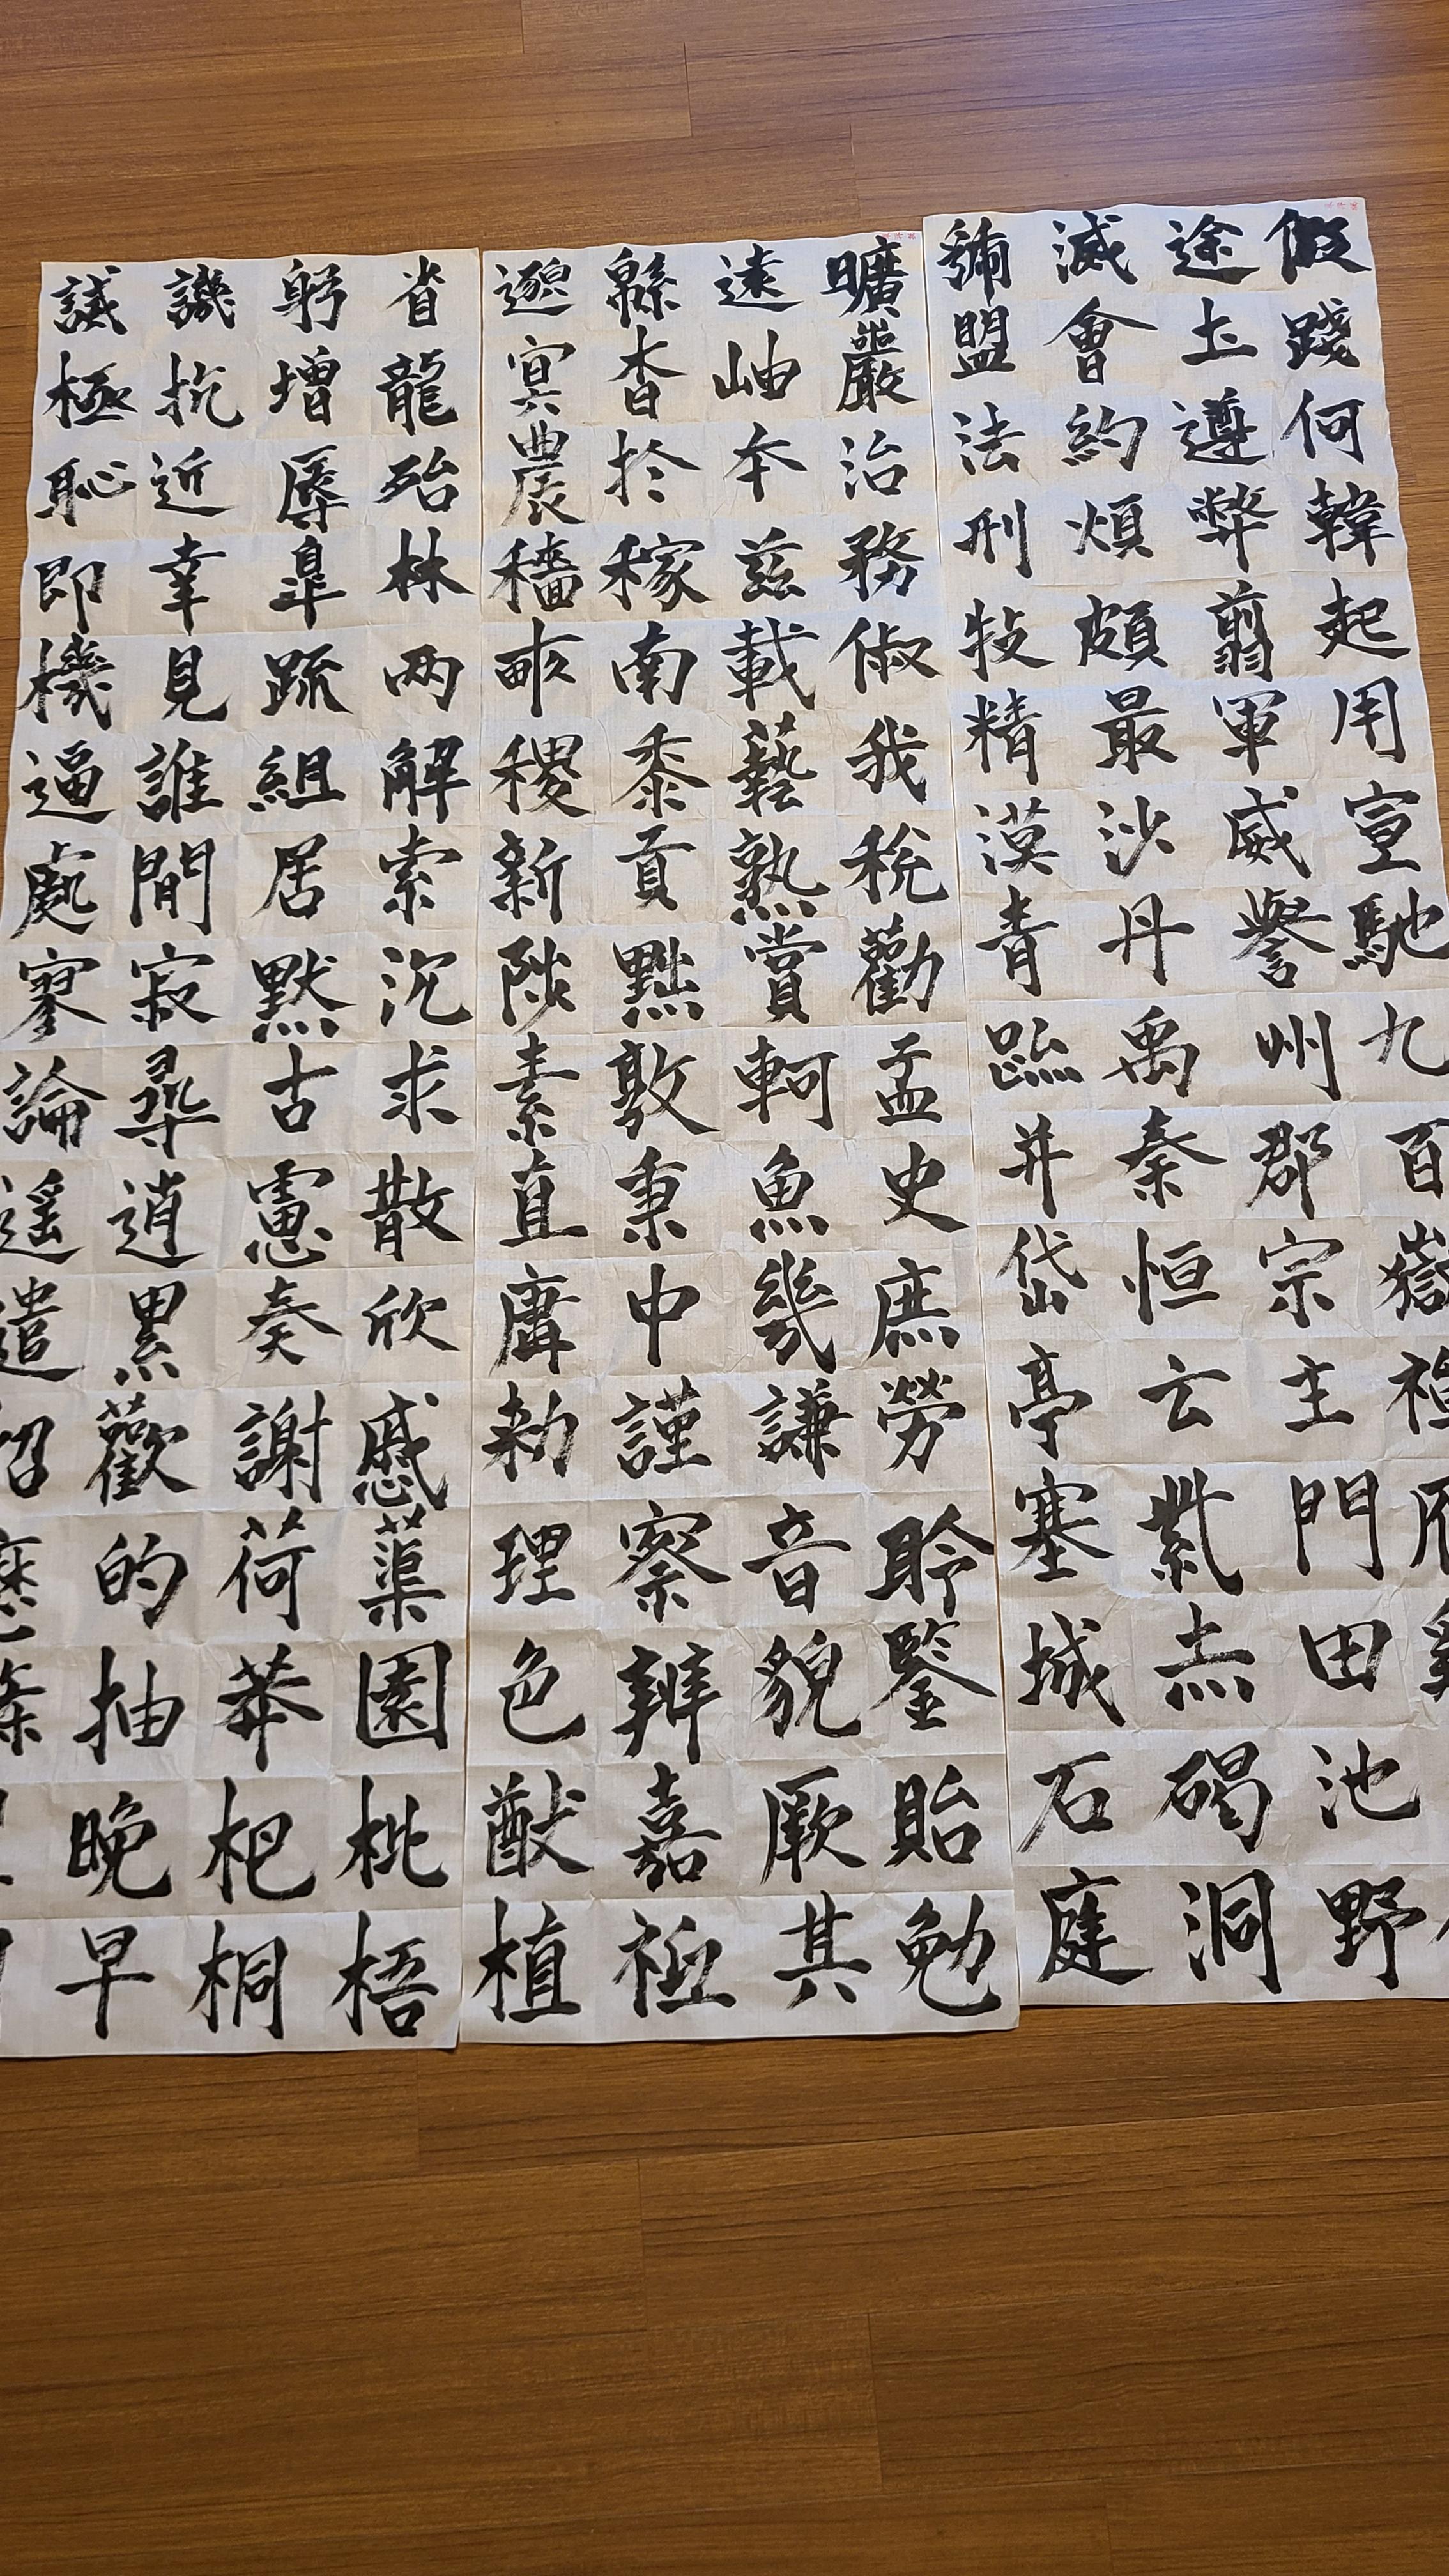 假途滅虢
踐土會盟
何遵約法
韓弊煩刑
起翦頗牧
用軍最精
宣威沙漠
馳譽丹青
九州禹跡
百郡秦并
嶽宗恒岱
禪主云亭
雁門紫塞
田赤城
池碣石
野洞庭
曠遠緜邈
巖岫杳冥
治本於農
務茲稼穡
俶載南畝
我藝黍稷
稅熟貢新
勸賞黜陟
孟軻敦素
史魚秉直
庶幾中庸
勞謙謹勅
聆音察理
鑒貌辨色
貽厥嘉猷
勉其祗植
省躬譏誡
龍增抗極
殆辱近恥
林皐幸即
两疏見機
解組誰逼
索居間處
沉默寂寥
求古尋論
散慮逍遙
欣奏累遣
慼謝歡招
蕖荷的
園莽抽條
枇杷晚
梧桐早